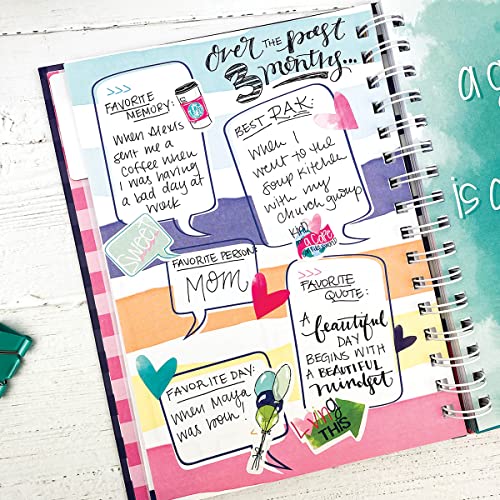 over THE past
3 months...
FAVORITE
MEMORY:
When Alexis
sent me a
Coffee when
I was having
a bad day at
Work
BEST RAK:
When I
went to the
Soup Kitchen
with my
Church group
Sweet
FAVORITE PERSON:
MOM
FAVORITE
QUOTE:
A beautiful
DAY
BEGINS WITH
A BEAUTIFUL
mindset
FAVORITE DAY:
When Maya
was born!
Loving
THIS
a
is a